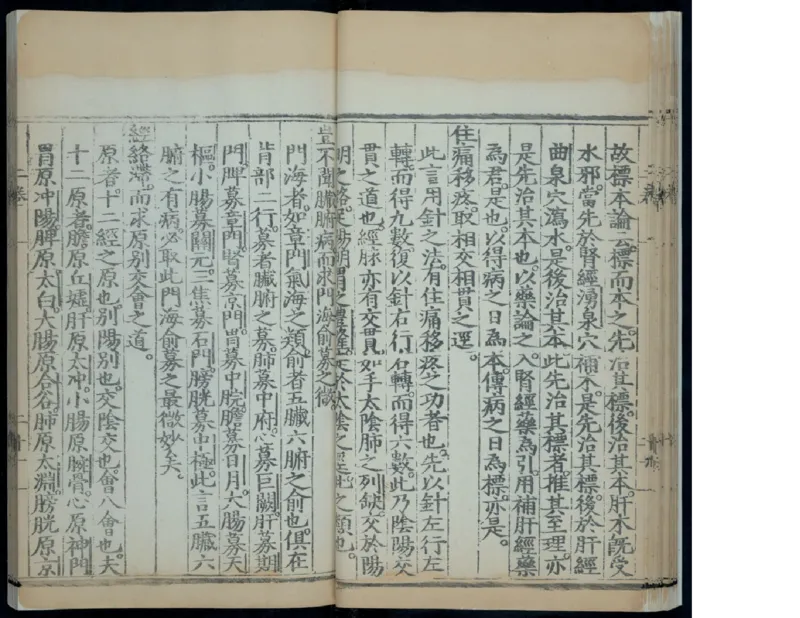 故標本論云標而本之先治其標後治其本肝木旣受
水邪當先於腎經湧泉穴補木是先治其標後於肝經
曲泉穴瀉水是後治其本此先治其標者推其至理亦
是先治其本也以藥論之入腎經藥為引用補肝經藥
為君是也以得病之日為本傳病之日為標亦是
住痛移疼取相交相貫之逕
此言用針之法有住痛移疼之功者也先以針左行左
轉而得九數復以針右行右轉而得六數此乃陰陽交
貫之道也經脉亦有交貫如手太陰肺之列缺交於陽
明之路足陽明胃之豊隆走於太陰之逕此之類也
豈不聞臟腑病而求門海俞募之微
門海者如章門氣海之類俞者五臟六腑之俞也俱在
背部二行募者臟腑之募肺募中府心募巨闕肝募期
門脾募章門腎募京門胃募中脘膽募日月大腸募天
樞小腸募關元三焦募石門膀胱募中極此言五臟六
腑之有病必取此門海俞募之最微妙矣
經絡滯而求原別交會之道
原者十二經之原也別陽別也交陰交也會八會也夫
十二原者膽原丘墟肝原太冲小腸原腕骨心原神門
胃原冲陽脾原太白大腸原合谷肺原太淵膀胱原京